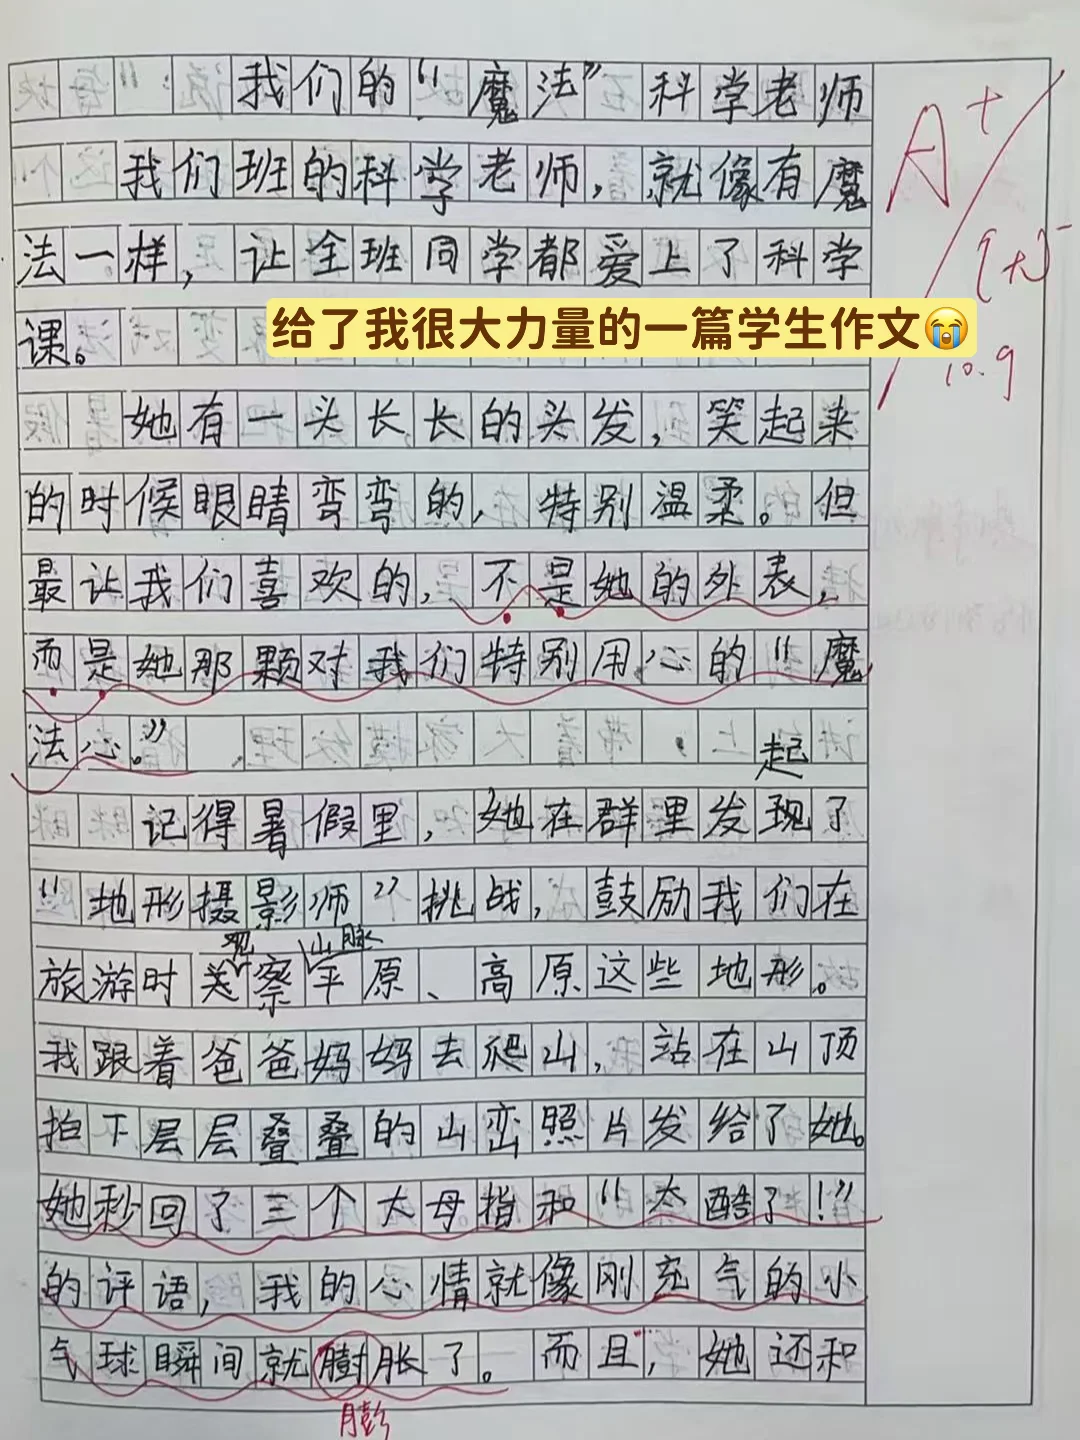 我们的“魔法”科学老师
我们班的科学老师，就像有魔
法一样，让全班同学都爱上了科学
课。
给了我很大力量的一篇学生作文😭
她有一头长长的头发，笑起来
的时候眼睛弯弯的，特别温柔。但
最让我们喜欢的，不是她的外表，
而是她那颗对我们特别用心的“魔
法心。”
起
记得暑假里，她在群里发现了
“地形摄影师”挑战，鼓励我们在
观 山脉
旅游时 察平原、高原这些地形。
我跟着爸爸妈妈去爬山，站在山顶
拍下层层叠叠的山峦照片发给了她。
她秒回了三个大母指和“太酷了！”
的评语，我的心情就像刚充气的小
气球瞬间就 胀了。而且，她还和
膨
A+
10.9